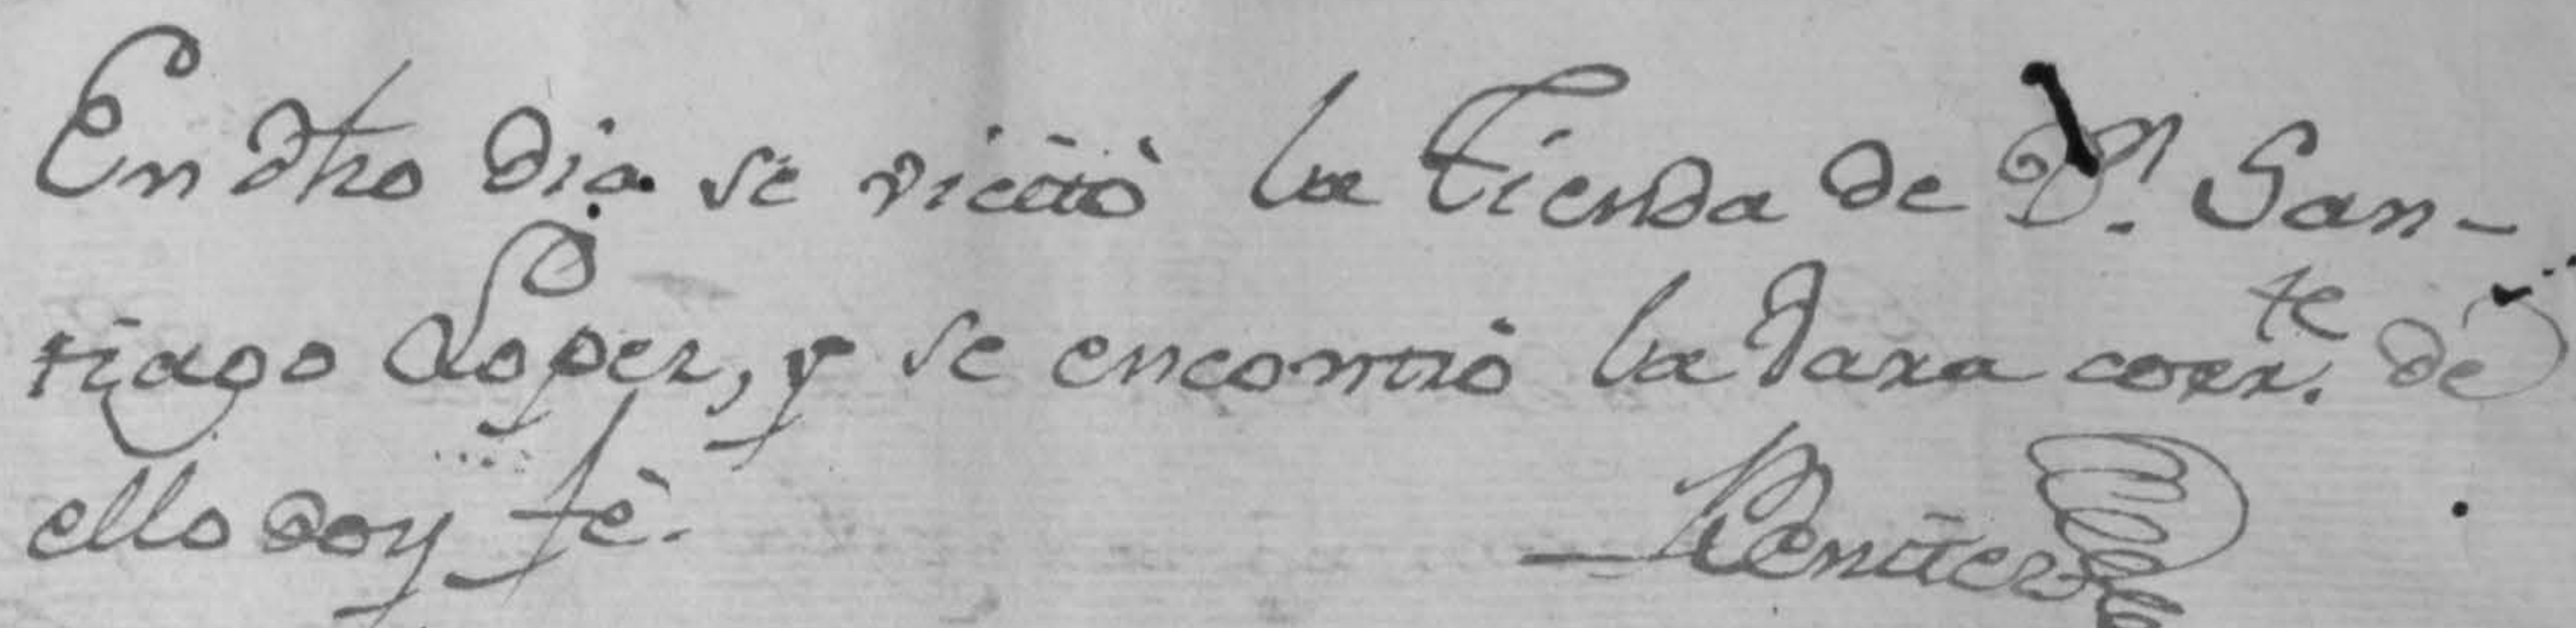 En dho dia se vicitò la Tienda de Dn. San-
tiago Lopez, y se encontrò la Vara corrte. de
ello doy fè.
Benitez